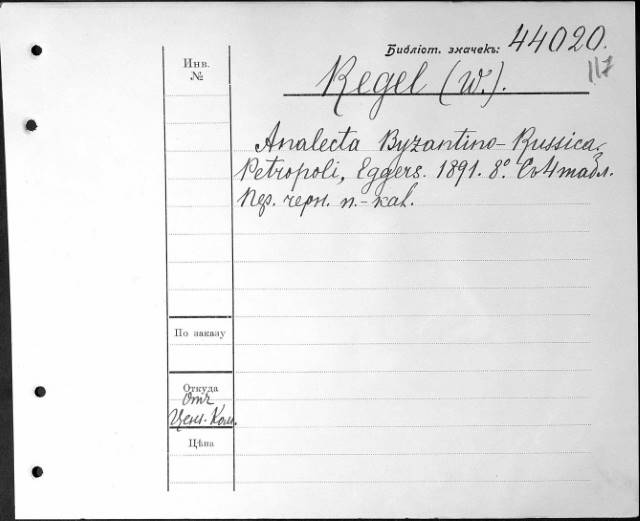 Библіот. значекъ: 44020.
117
Инв.
№
Regel (W.).
Analecta Byzantino-Russica.
Petropoli, Eggers. 1891. 8°. Съ 4 табл.
Пер. черн. п.-каl.
По заказу
Откуда
Отъ
Ценз. Ком.
Цѣна